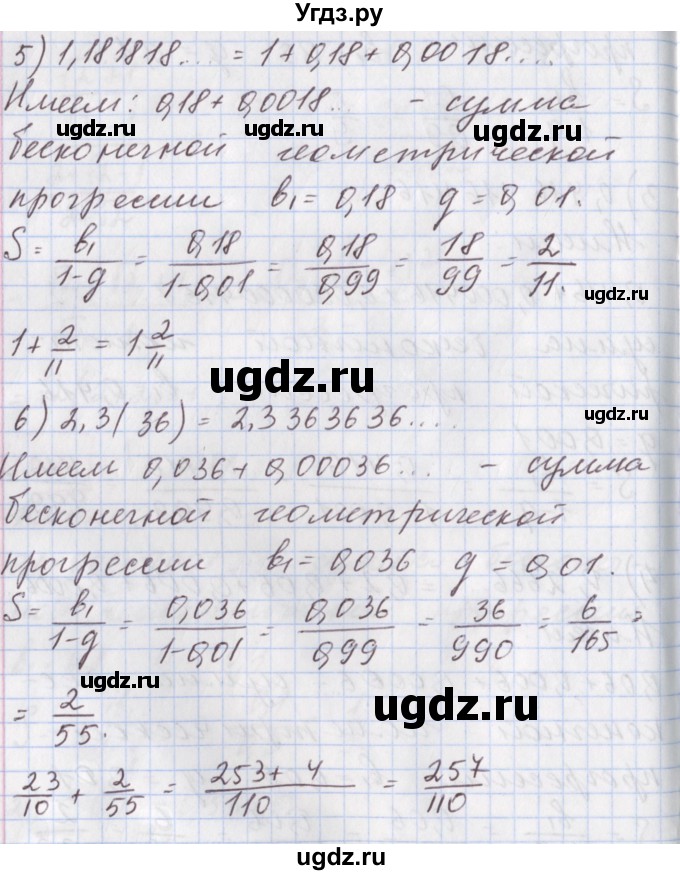 Угдз.ру
5) 1,181818... = 1 + 0,18 + 0,0018....
Имеем: 0,18 + 0,0018... - сумма
ugdz.ru ugdz.ru ugdz.ru
бесконечной геометрической
прогрессии b₁ = 0,18 q = 0,01.
ugdz.ru
S = b₁/(1-q) = 0,18/(1-0,01) = 0,18/0,99 = 18/99 = 2/11.
ugdz.ru
1 + 2/11 = 1 2/11
ugdz.ru
6) 2,3(36) = 2,3363636....
ugdz.ru
Имеем 0,036 + 0,00036... - сумма
бесконечной геометрической
ugdz.ru
прогрессии b₁ = 0,036 q = 0,01.
S = b₁/(1-q) = 0,036/(1-0,01) = 0,036/0,99 = 36/990 = 6/165 =
ugdz.ru ugdz.ru
= 2/55.
23/10 + 2/55 = (253 + 4)/110 = 257/110
ugdz.ru